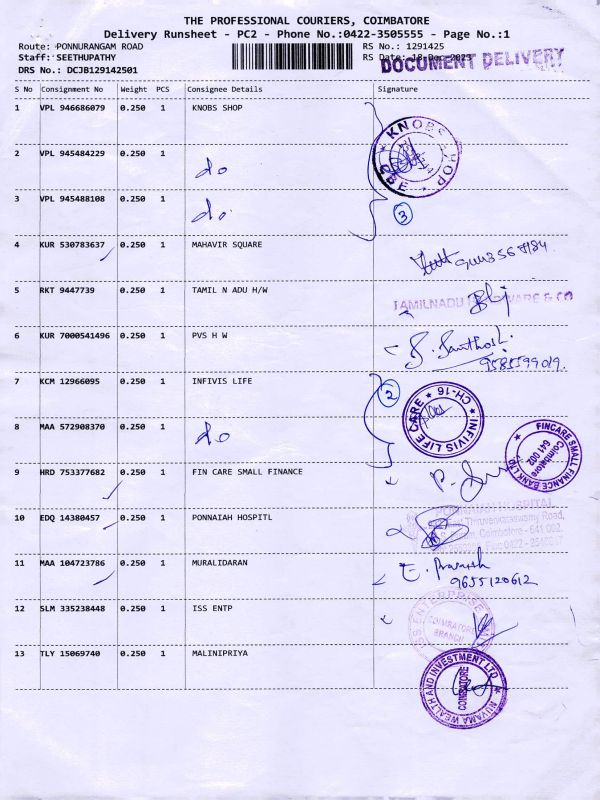 THE PROFESSIONAL COURIERS, COIMBATORE
Delivery Runsheet - PC2 - Phone No.:0422-3505555 - Page No.:1
Route: PONNURANGAM ROAD
Staff: SEETHUPATHY
DRS No.: DCJB129142501
RS No.: 1291425
RS Date: 18-Dec-2023
DOCUMENT DELIVERY
S No Consignment No Weight PCS Consignee Details Signature
1 VPL 946686079 0.250 1 KNOBS SHOP
KNOBS SHOP
2 VPL 945484229 0.250 1 do
3 VPL 945488108 0.250 1 do
3
4 KUR 530783637 0.250 1 MAHAVIR SQUARE
5 RKT 9447739 0.250 1 TAMIL N ADU H/W
TAMILNADU HARDWARE & CO
6 KUR 7000541496 0.250 1 PVS H W
S. Santhosh.
9585599019.
7 KCM 12966095 0.250 1 INFIVIS LIFE
2
INFIVIS LIFE CARE * CH-16 *
8 MAA 572908370 0.250 1 do
FINCARE SMALL FINANCE BANK LTD
Coimbatore
641 002
9 HRD 753377682 0.250 1 FIN CARE SMALL FINANCE
10 EDQ 14380457 0.250 1 PONNAIAH HOSPITL
HOSPITAL
Thiruvenkataswamy Road,
Coimbatore - 641 002.
11 MAA 104723786 0.250 1 MURALIDARAN
9655120612
12 SLM 335238448 0.250 1 ISS ENTP
ISS ENTERPRISE
COIMBATORE
BRANCH
13 TLY 15069740 0.250 1 MALINIPRIYA
NUVAMA WEALTH AND INVESTMENT LTD
COIMBATORE